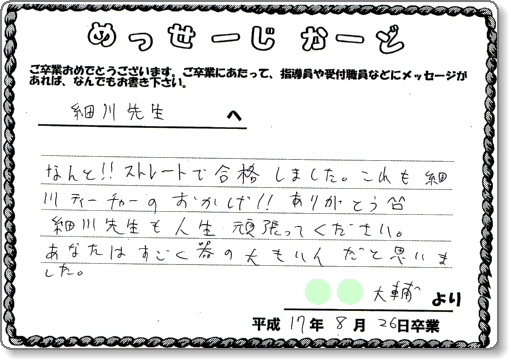 めっせーじかーど
ご卒業おめでとうございます。ご卒業にあたって、指導員や受付職員などにメッセージが
あれば、なんでもお書き下さい。
細川先生 へ
なんと!!ストレートで合格しました。これも細
川ティーチャーのおかげ!!ありがとう
細川先生も人生頑張ってください。
あなたはすごく器の大もいんだと思いま
した。
大輔 より
平成 17年 8月 26日卒業